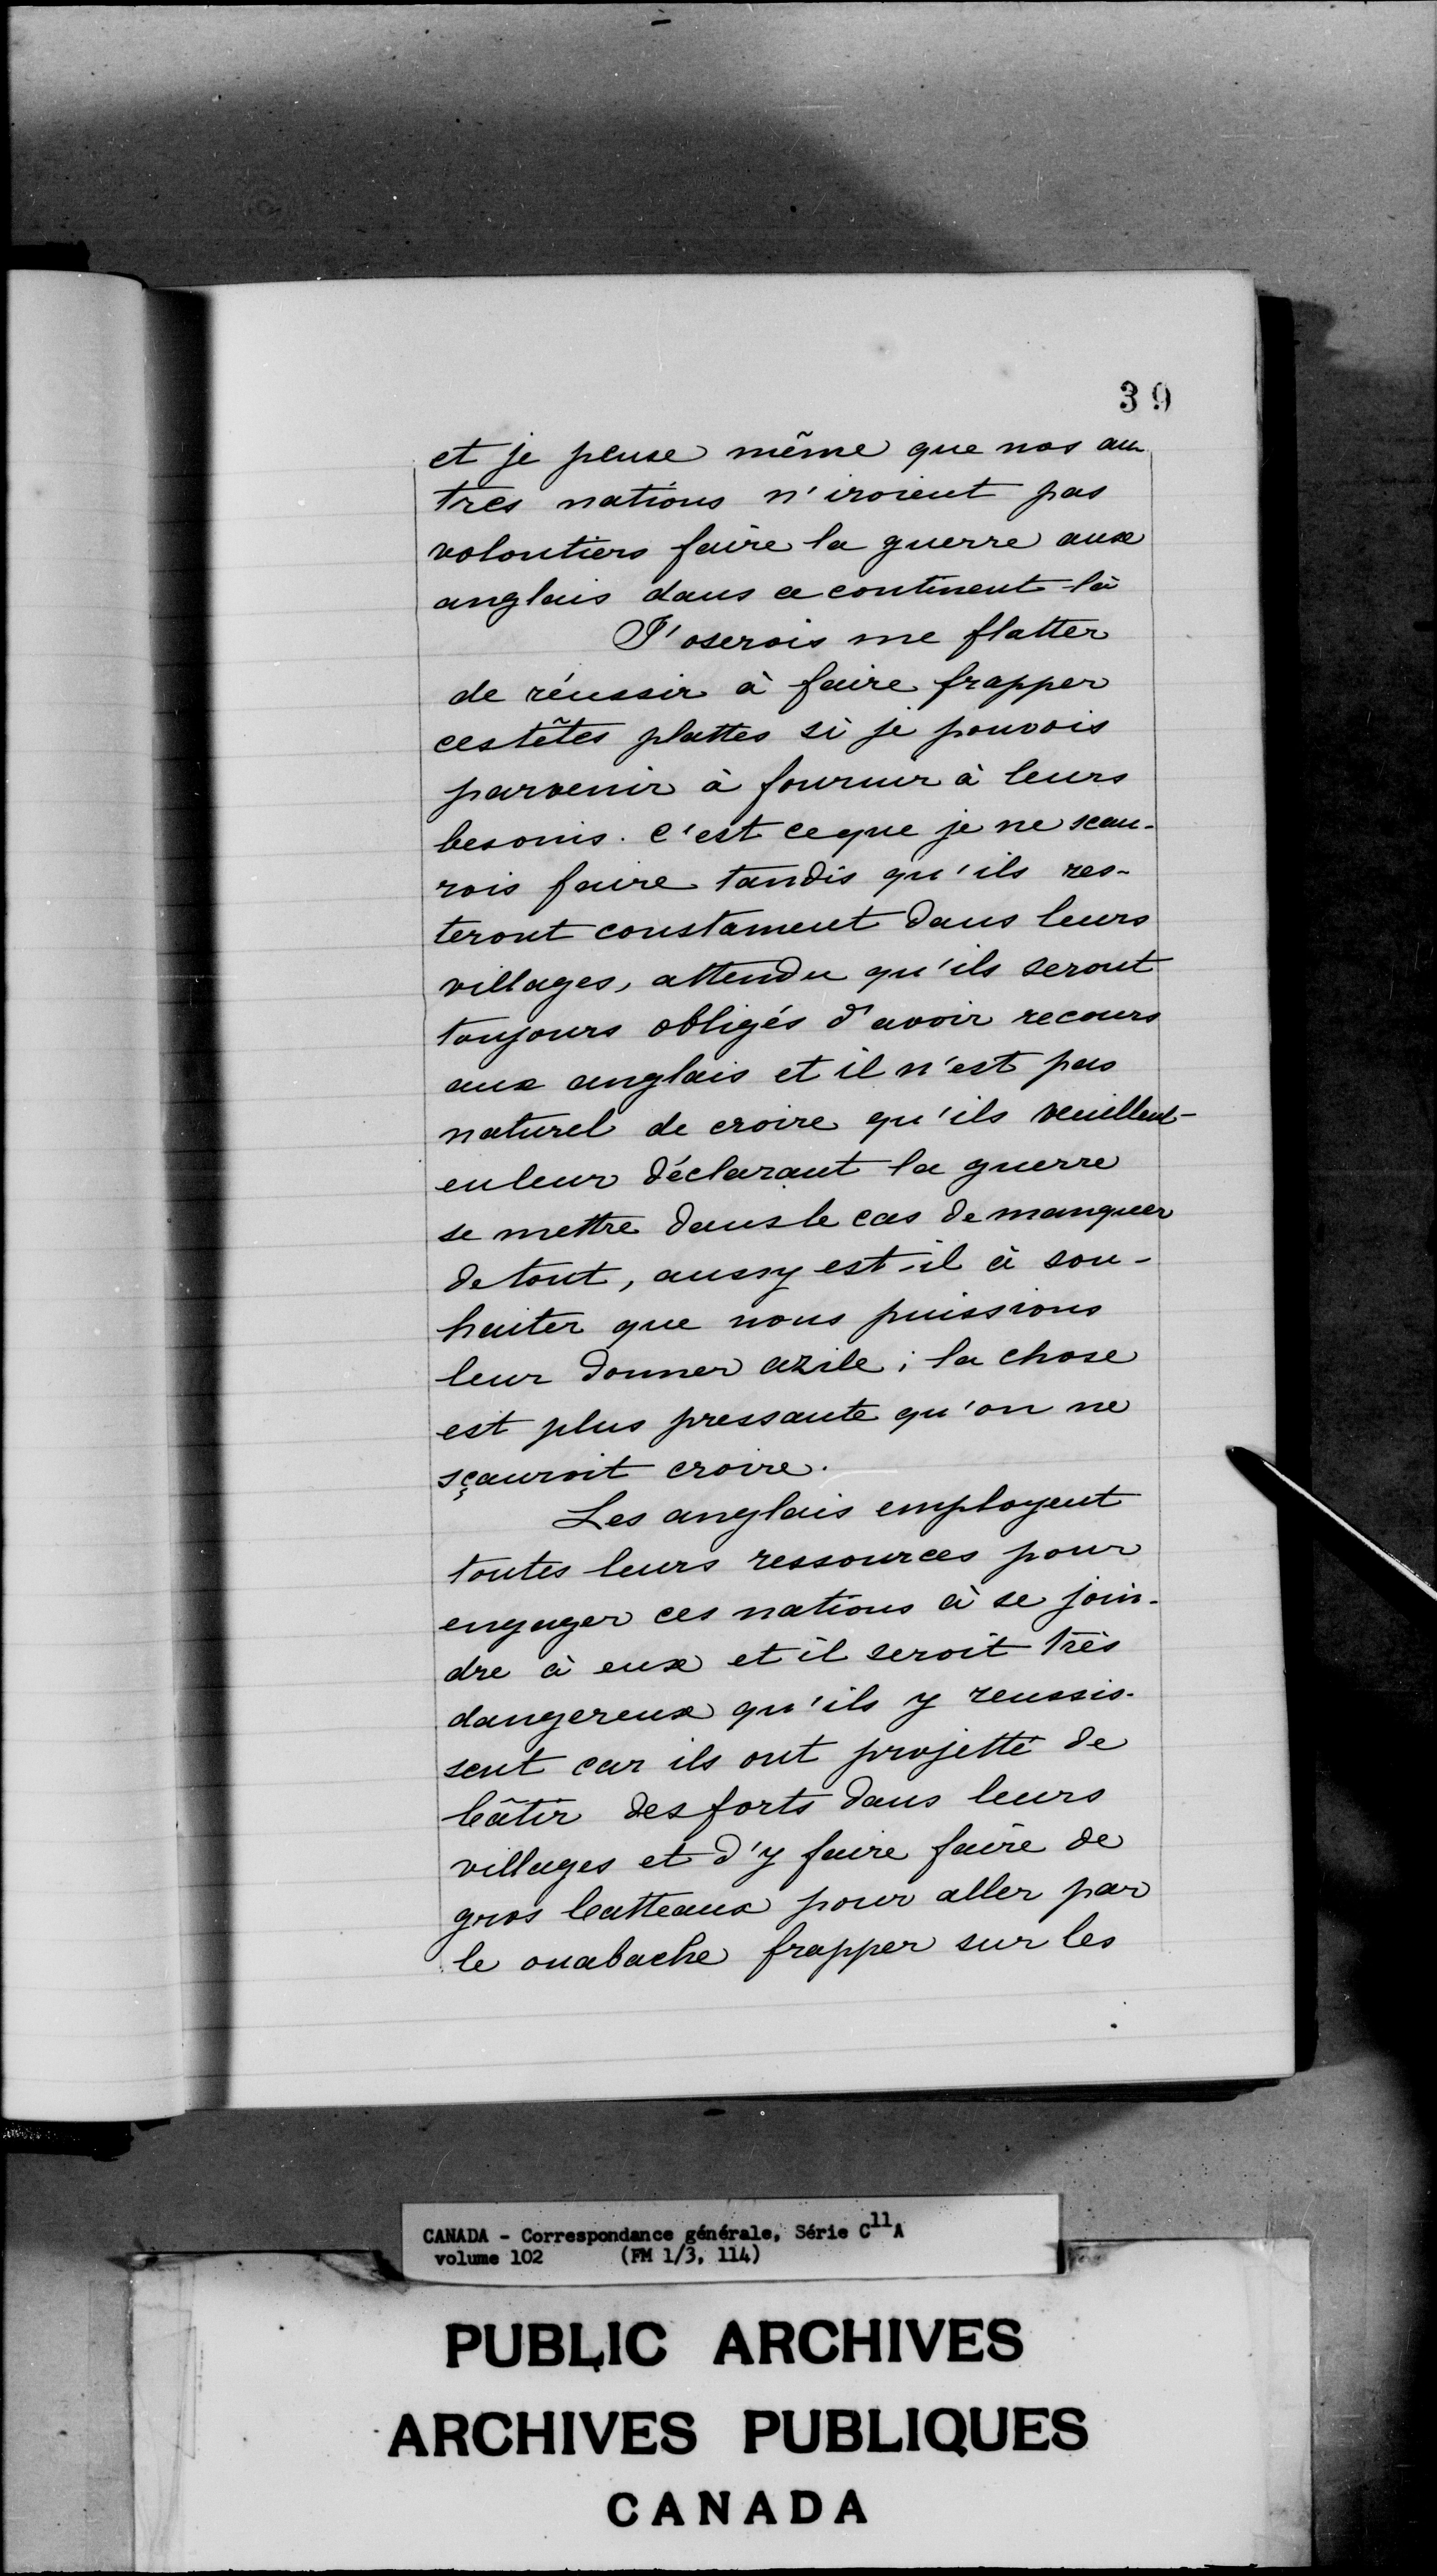 39
et je pense même que nos au
tres nations n'iroient pas
volontiers faire la guerre aux
anglais dans ce continent-là
J'oserois me flatter
de réussir à faire frapper
ces têtes plattes si je pouvois
parvenir à fournir à leurs
besoins. c'est ce que je ne scau-
rois faire tandis qu'ils res-
teront constament dans leurs
villages, attendu qu'ils seront
toujours obligés d'avoir recours
aux anglais et il n'est pas
naturel de croire qu'ils veuillent-
en leur déclarant la guerre
se mettre dans le cas de manquer
de tout, aussy est-il à sou-
haiter que nous puissions
leur donner azile; la chose
est plus pressante qu'on ne
sçauroit croire.
Les anglais employent
toutes leurs ressources pour
engager ces nations à se join-
dre à eux et il seroit très
dangereux qu'ils y reussis-
sent car ils ont projetté de
bâtir des forts dans leurs
villages et d'y faire faire de
gros batteaux pour aller par
le ouabache frapper sur les
CANADA - Correspondance générale, Série C11A
volume 102 (FM 1/3, 114)
PUBLIC ARCHIVES
ARCHIVES PUBLIQUES
CANADA